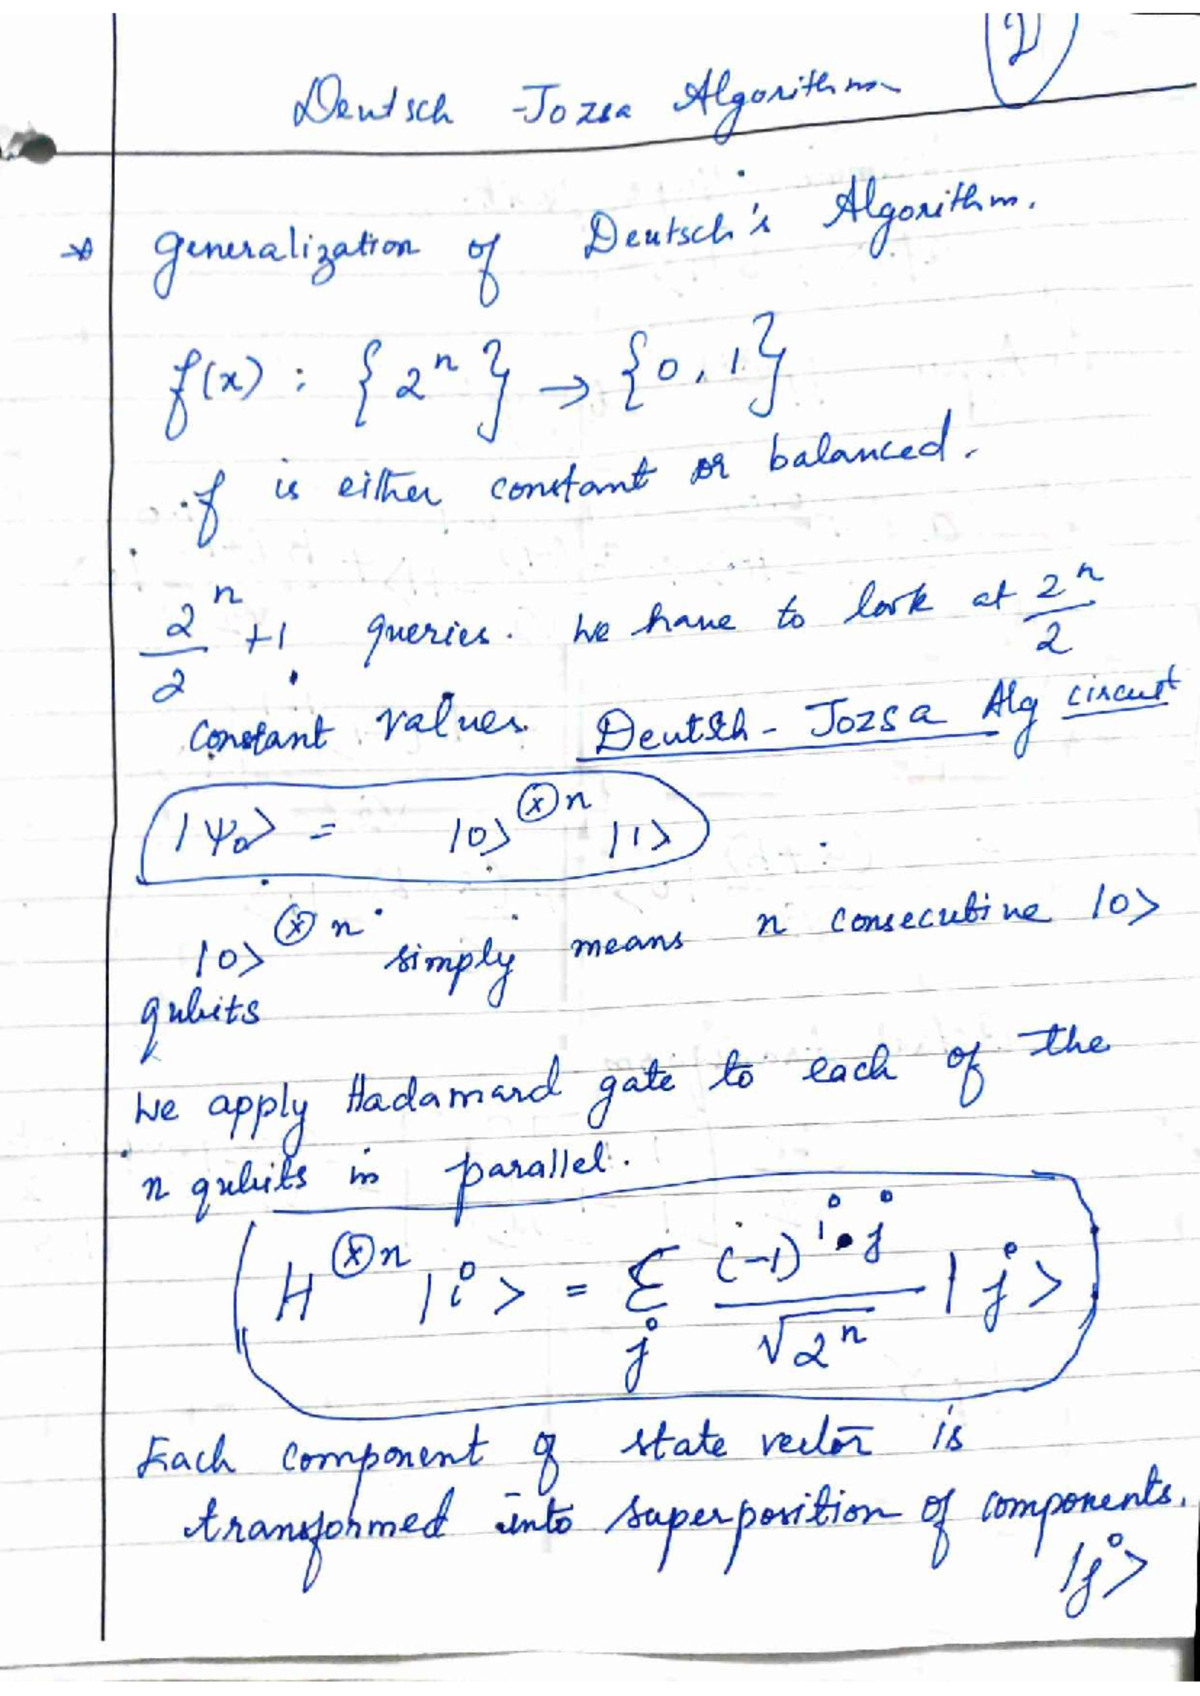 2
Deutsch-Jozsa Algorithm
* Generalization of Deutsch's Algorithm.
f(x) : {2^n} → {0, 1}
f is either constant or balanced.
2^n/2 +1 queries. We have to look at 2^n/2
constant values. Deutsch-Jozsa Alg circuit
|Ψ₀> = |0>^⊗n |1>
|0>^⊗n simply means n consecutive |0>
qubits
We apply Hadamard gate to each of the
n qubits in parallel.
H^⊗n |i> = Σ_j (-1)^{i•j}/√2^n |j>
Each component of state vector is
transformed into superposition of components.
|j>